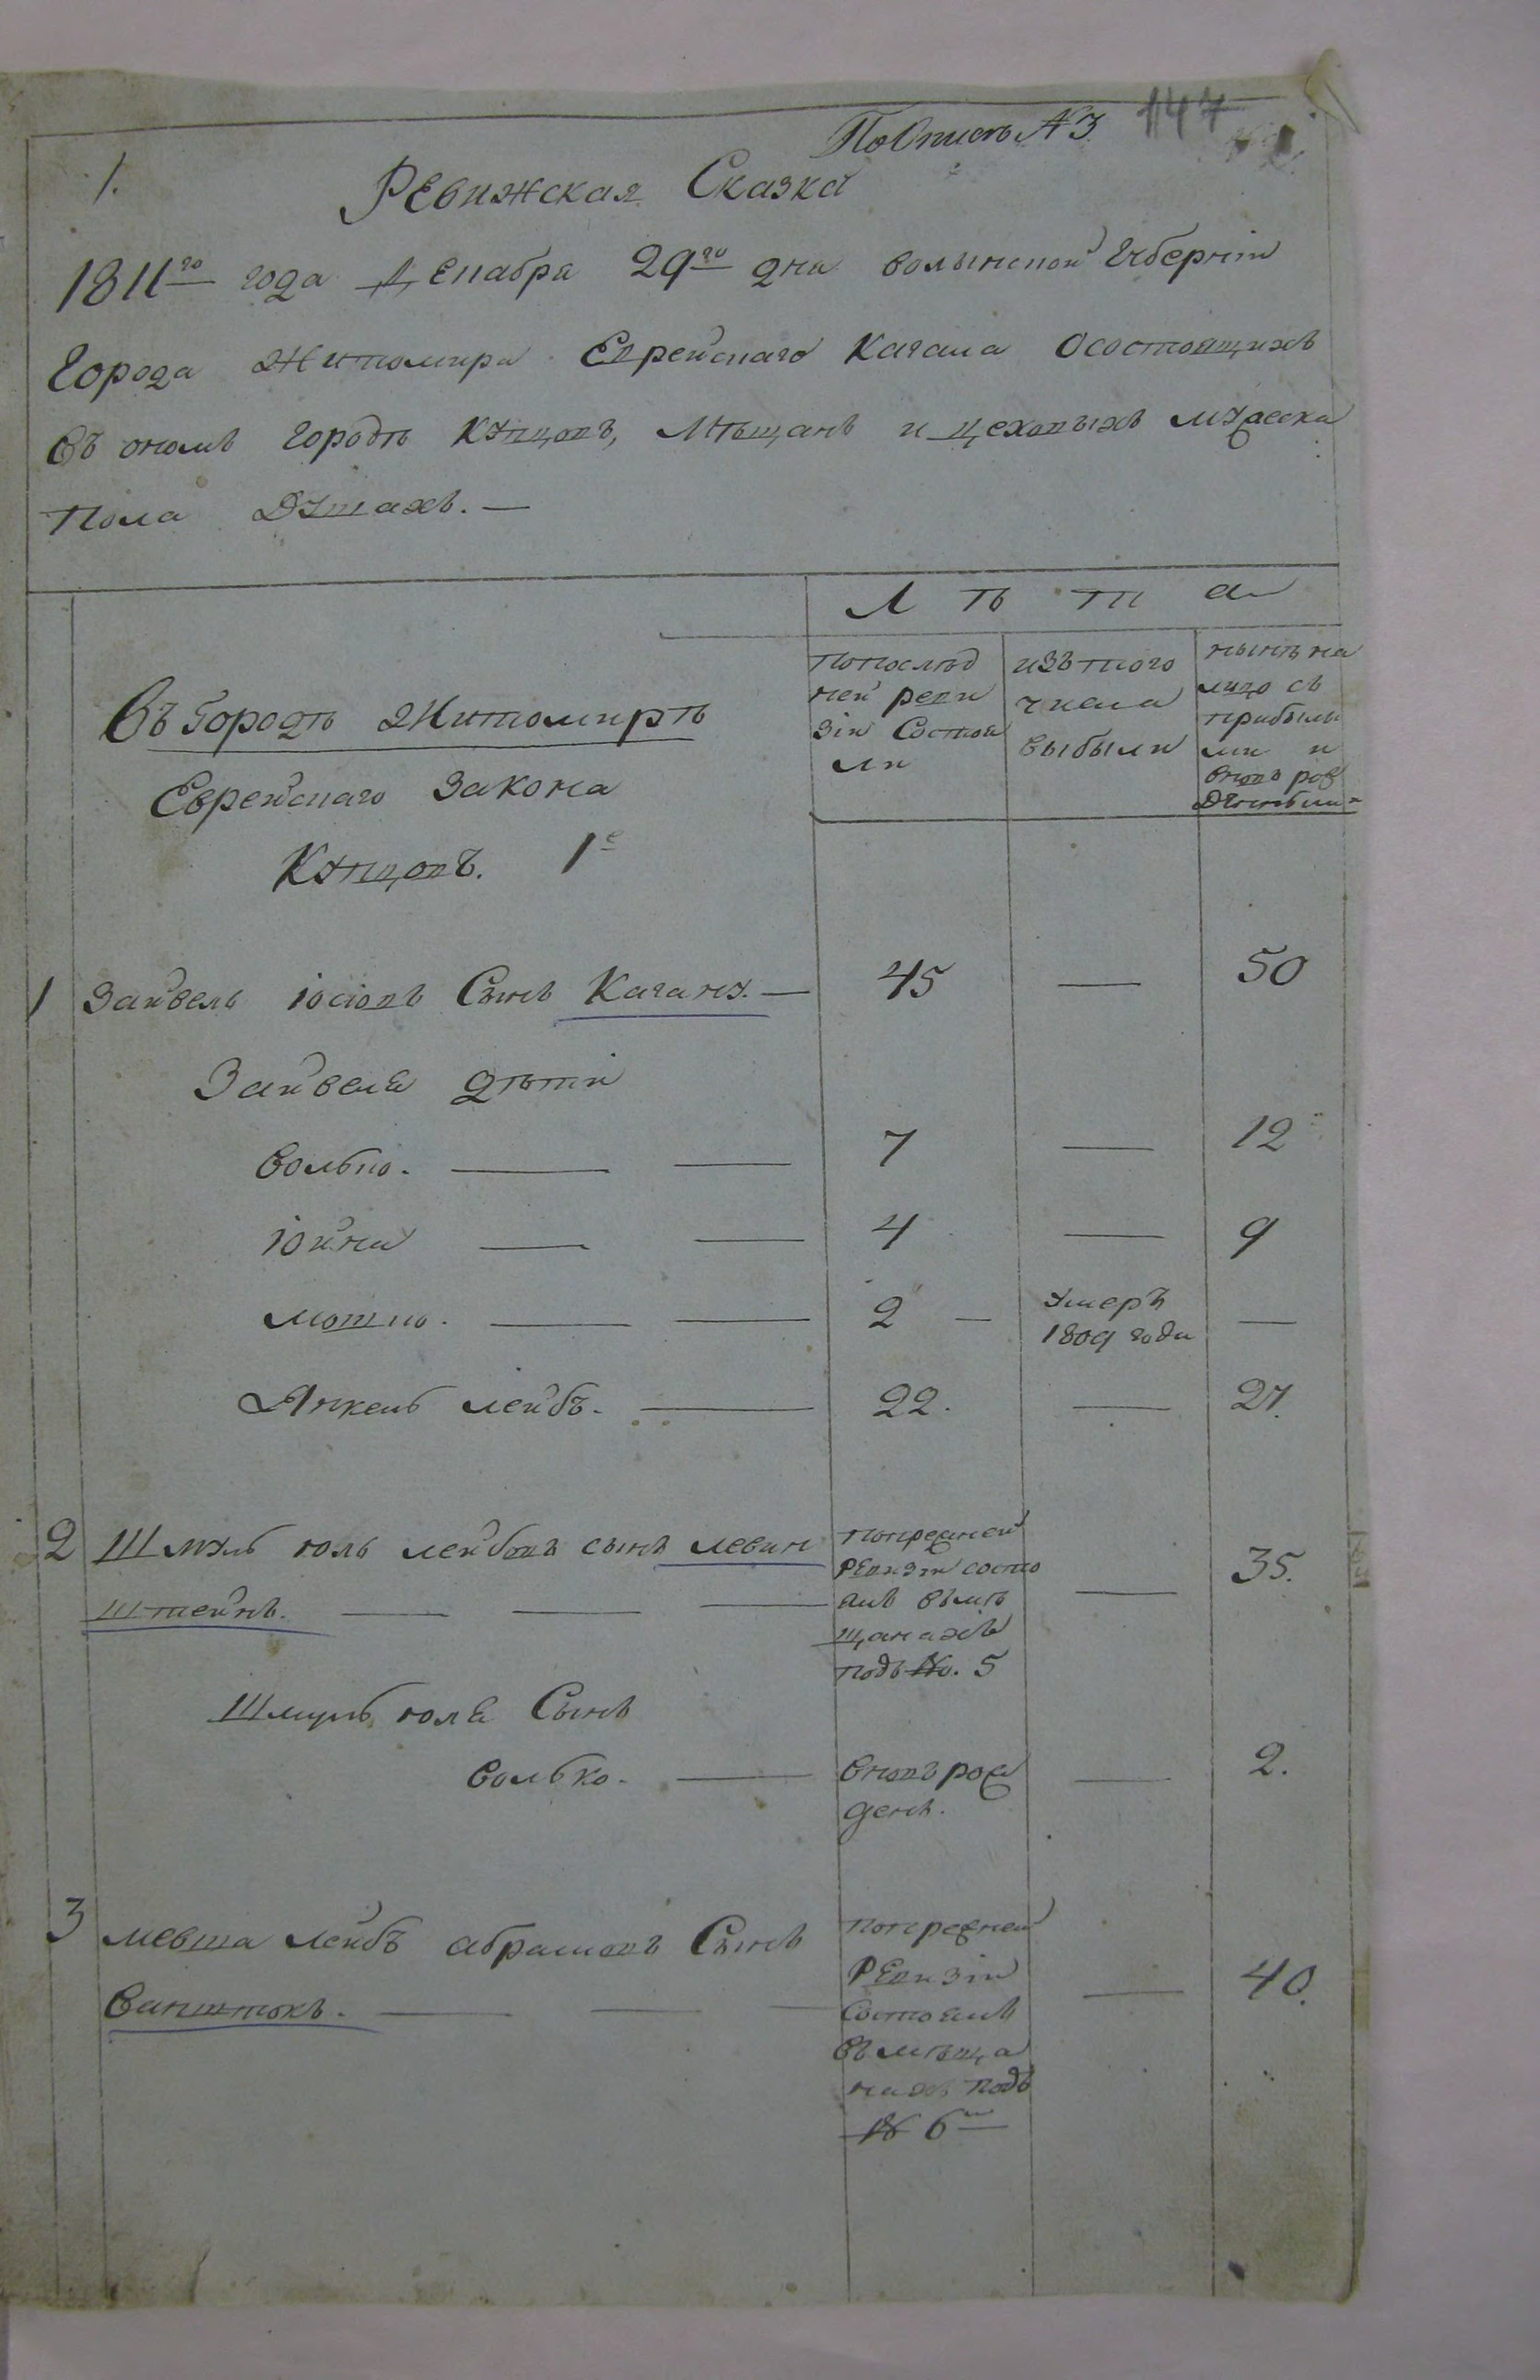 По Описи № 3 147
1.
Ревижская Сказка
1811го года Декабря 29го дня волынской Губерніи
Города Житомира Еврейскаго Кагала Осостоящихъ
Въ ономъ городѣ Купцовъ, Мѣщанъ и цеховыхъ мужеска
Пола Душахъ. —
Лѣта
Въ Городѣ Житомирѣ
Еврейскаго Закона
Купцовъ. 1е
попослѣд
ней реви
зіи Состоя
ли
изъ того
числа
выбыли
нынѣ на
лицо съ
прибылы
ми и
вновь рож
денными
1 Зайвель іосіовъ Сынъ Кагану. — 45 — 50
Зайвеля дѣти
Волько. — — 7 — 12
іойна — — 4 — 9
мотко. — — 2 — умеръ
1809 года —
Янкель лейбъ. — 22. — 27.
2 Шмуль юль лейбовъ сынъ левин
штейнъ. — — —
попрежней
Ревизіи состо
ялъ вьмѣ
щанахъ
подъ No. 5
— 35.
Шмуль юля Сынъ
Волько. — вновь рож
денъ. — 2.
3 мевша лейбъ абрамовъ Сынъ
Ваништокъ. — — —
попрежней
Ревизіи
Состоялъ
въ мѣща
нахъ подъ
№ 6м
— 40.